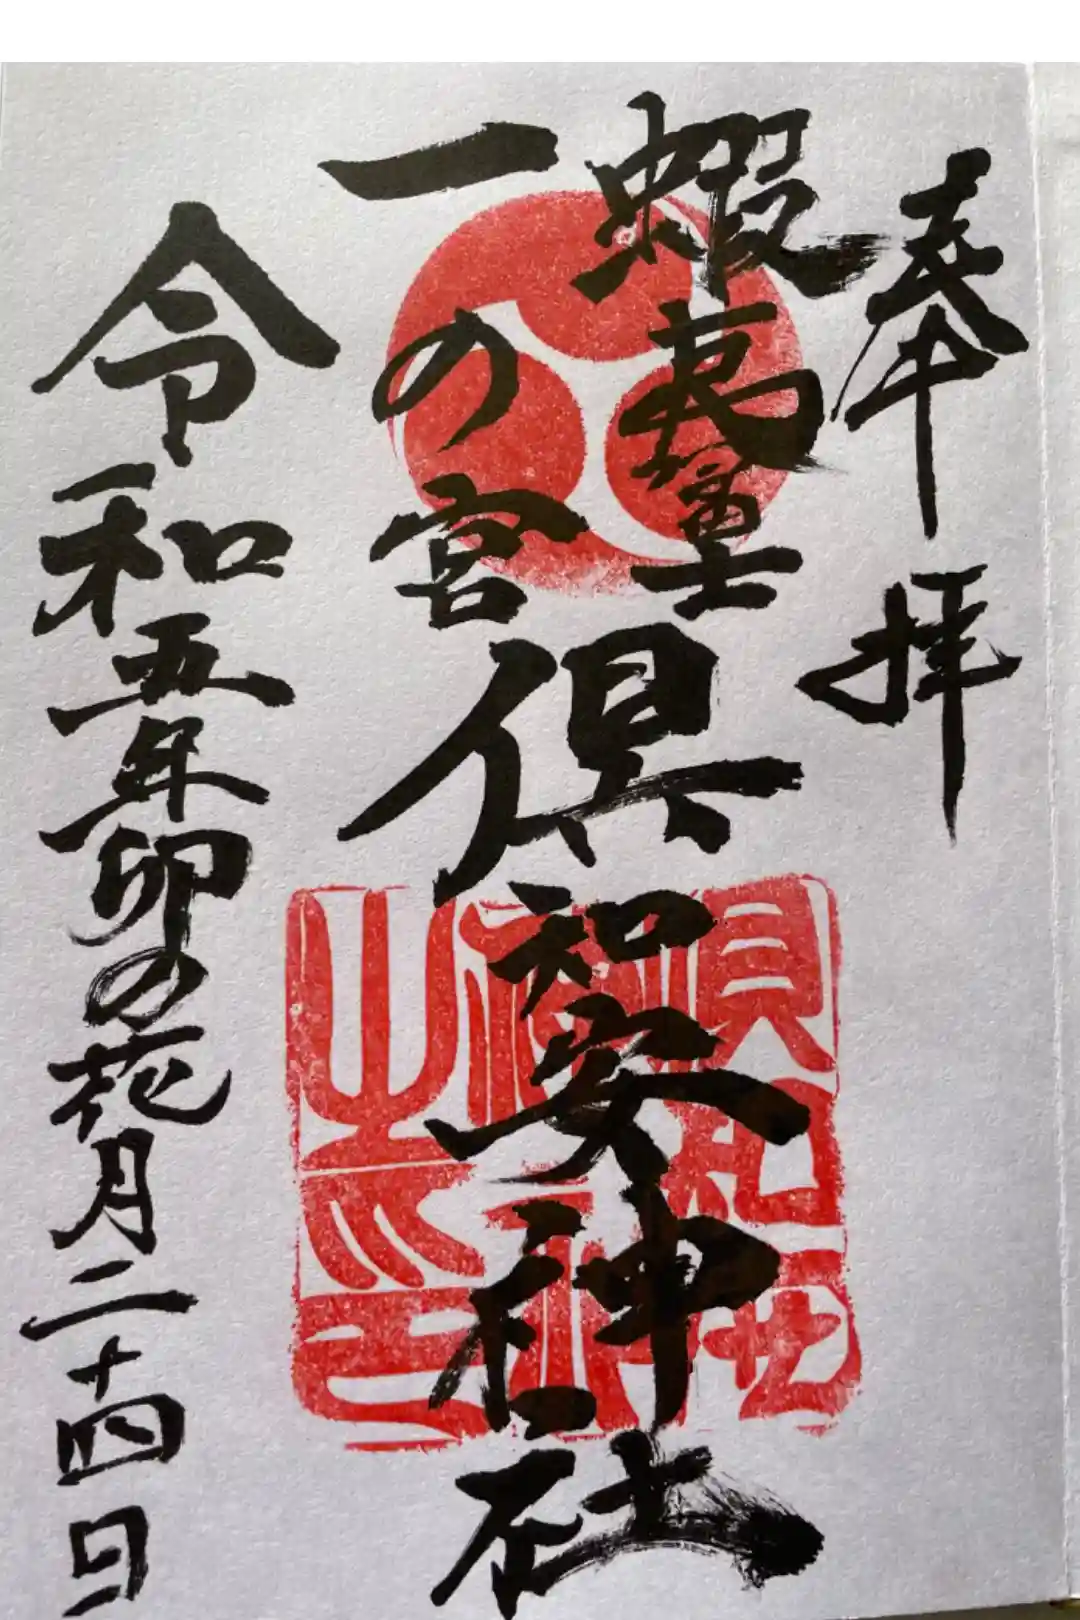 奉拝
蝦夷富士
一の宮
倶知安神社
令和五年卯の花月二十四日